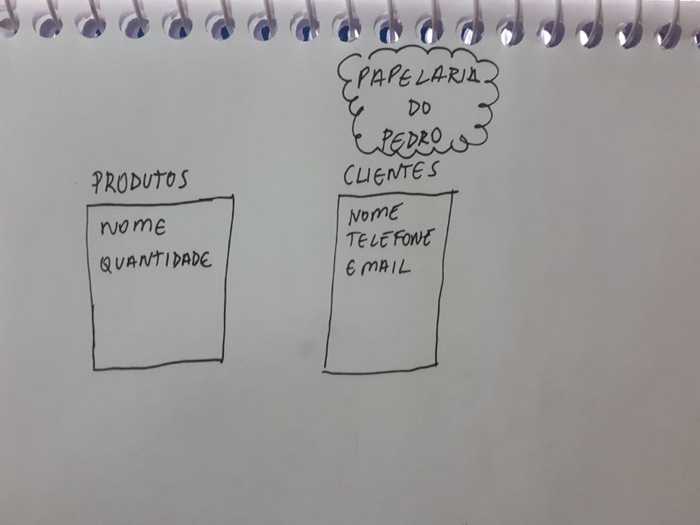 PAPELARIA
DO
PEDRO
PRODUTOS
NOME
QUANTIDADE
CLIENTES
NOME
TELEFONE
EMAIL